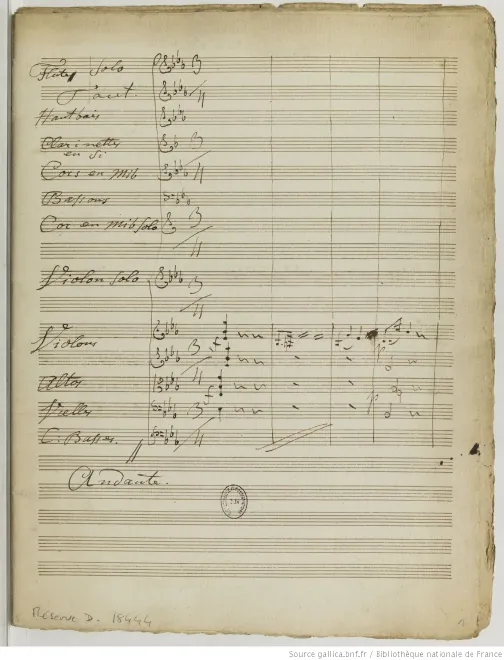 Flûtes Solo
Hautbois
Clarinettes
en si
Cors en mib
Bassons
Cor en mib Solo
Violon Solo
Violons
Altos
Vcelles
C. Basses.
Andante.
Réserve D. 18444
Source gallica.bnf.fr / Bibliothèque nationale de France